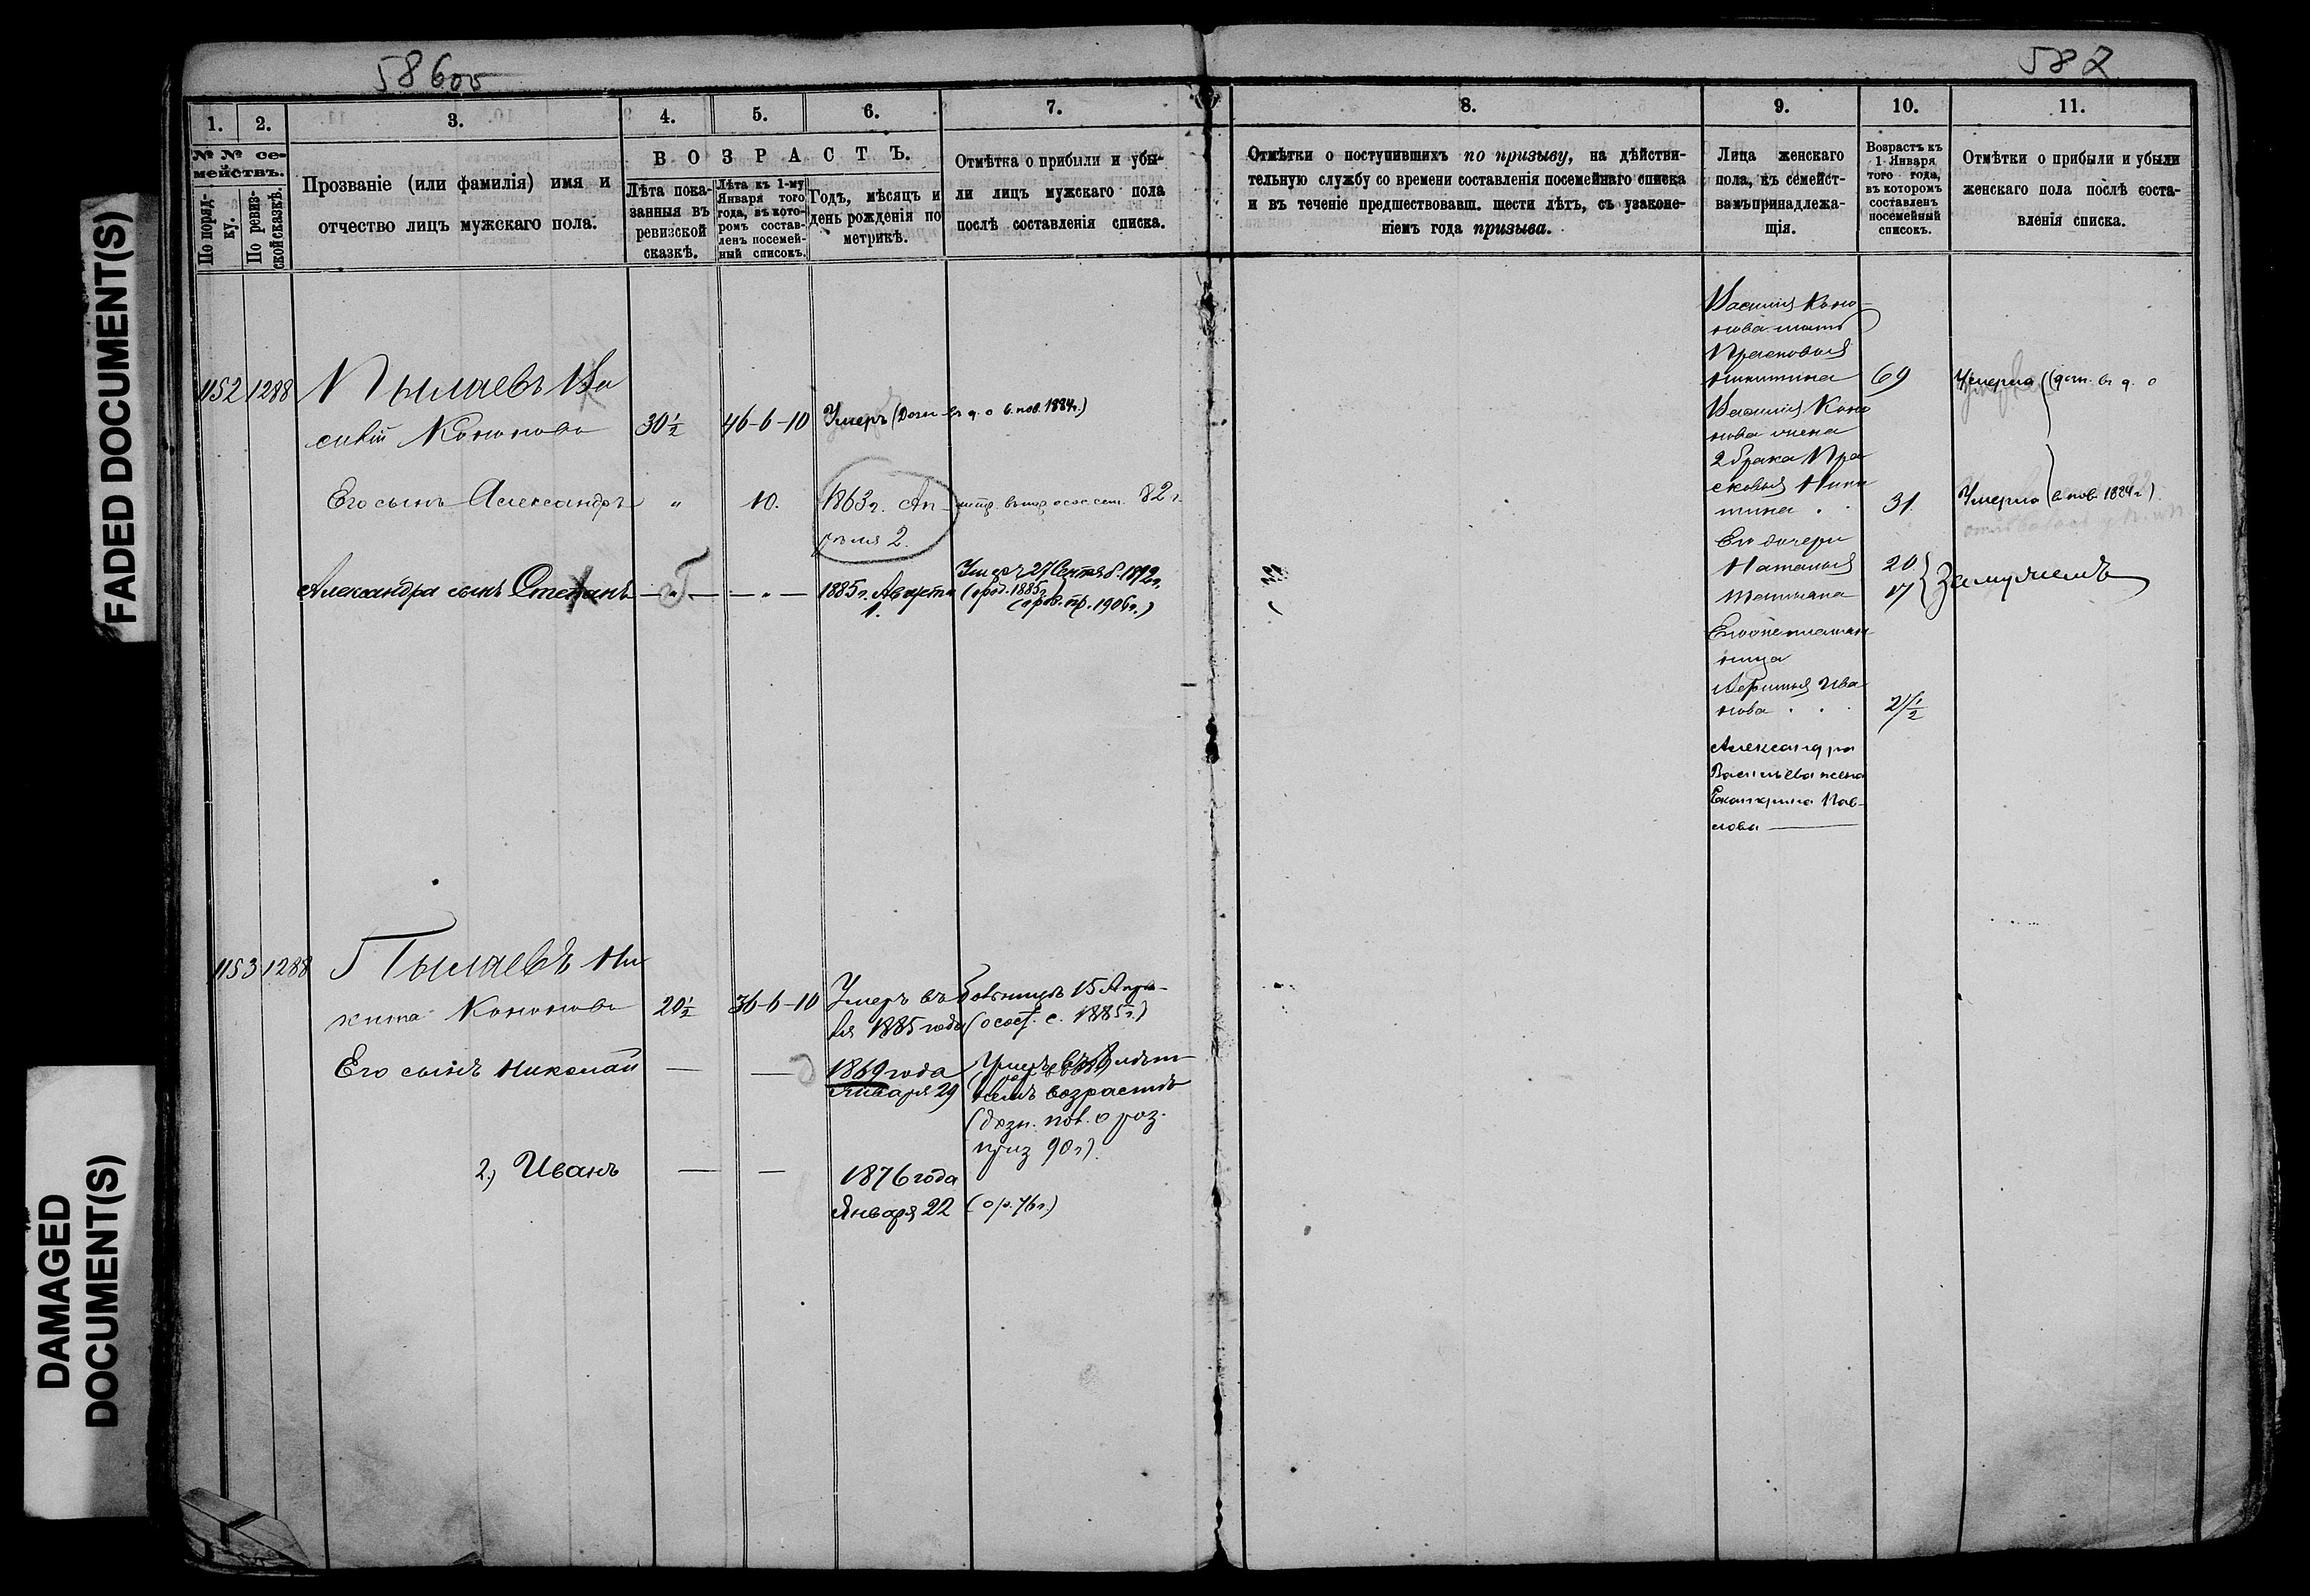 FADED DOCUMENT(S)
DAMAGED
DOCUMENT(S)
582
1.
2.
3.
4.
5.
6.
7.
№ № се-
мействъ.
По поряд-
ку.
По ревиз-
ской сказкѣ.
Прозваніе (или фамилія) имя и
отчество лицъ мужскаго пола.
ВОЗРАСТЪ.
Лѣта пока-
занныя въ
ревизской
сказкѣ.
Лѣта къ 1-му
Января того
года, въ кото-
ромъ состав-
ленъ посемей-
ный списокъ.
Годъ, мѣсяцъ и
день рожденія по
метрикѣ.
Отмѣтка о прибыли и убы-
ли лицъ мужскаго пола
послѣ составленія списка.
8.
9.
10.
11.
Отмѣтки о поступившихъ по призыву, на дѣйстви-
тельную службу со времени составленія посемейнаго списка
и въ теченіе предшествовавш. шести лѣтъ, съ узаконе-
ніемъ года призыва.
Лица женскаго
пола, къ семейст-
вамъ принадлежа-
щія.
Возрастъ къ
1 Января
того года,
въ которомъ
составленъ
посемейный
списокъ.
Отмѣтки о прибыли и убыли
женскаго пола послѣ соста-
вленія списка.
1152 1288 Пылаевъ Ва
силій Кононовъ 30½ 46-6-10 Умеръ (Дозн. въ д. о в. пов. 1884г.)
Его сынъ Александръ " 10. 1863г. Ап
рѣля 2.
82 г.
Александра сынъ Степанъ — " — — " — 1885г. Августа
1.
Умеръ 27 Сентяб. 1892г.
(о род. 1885г.)
1906г.)
Василія Коно-
нова мать
Прасковья
Никитина 69 Умерла
Василія Коно
нова жена
2 брака Пра
сковья Ники
тина 31. Умерла (в. пов. 1884 г.)
Его дочери
Наталья 20
Татьяна 17 Замужемъ
Его племян
ница
Ива
нова 21½
Александра
Васильева жена
Екатерина Пав-
лова —
1153 1288 Пылаевъ Ни
кита Кононовъ 20½ 36-6-10 Умеръ въ больницѣ 15 Апрѣ-
ля 1885 года (о сост. с. 1885г.)
Его сынъ Николай — — 1869 года
Января 29
Умеръ
возрастѣ
(дозн. пов. о роз.
приз 90г.)
2.) Иванъ — — 1876 года
Января 22 (о р. 76г.)